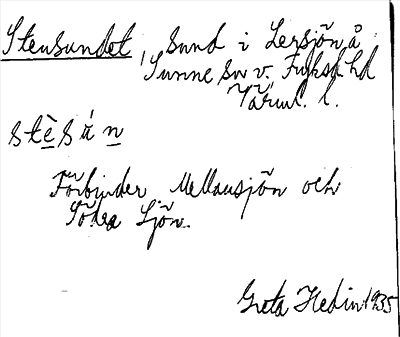 Stensundet, Sund i Lersjön å
Sunne sn v. Fryksd. hd
Värml. l.
stèsún
Förbinder Mellansjön och
Södra Sjön.
Greta Hedin 1935